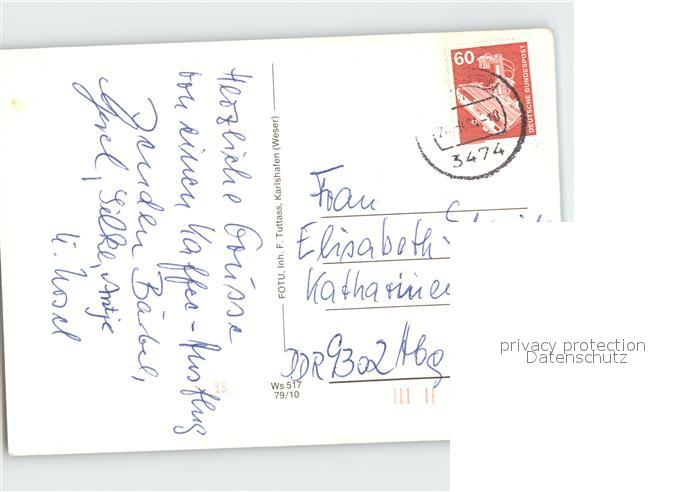 Herzliche Grüsse
von einem Kaffee-Ausflug
senden Bärbel,
Silke, Antje
FOTU, Inh. F. Tuttass, Karlshafen (Weser)
Ws 517
79/10
60
DEUTSCHE BUNDESPOST
3474
Frau
Elisabeth
Katharinen
DDR 9302 Abg
15
privacy protection
Datenschutz